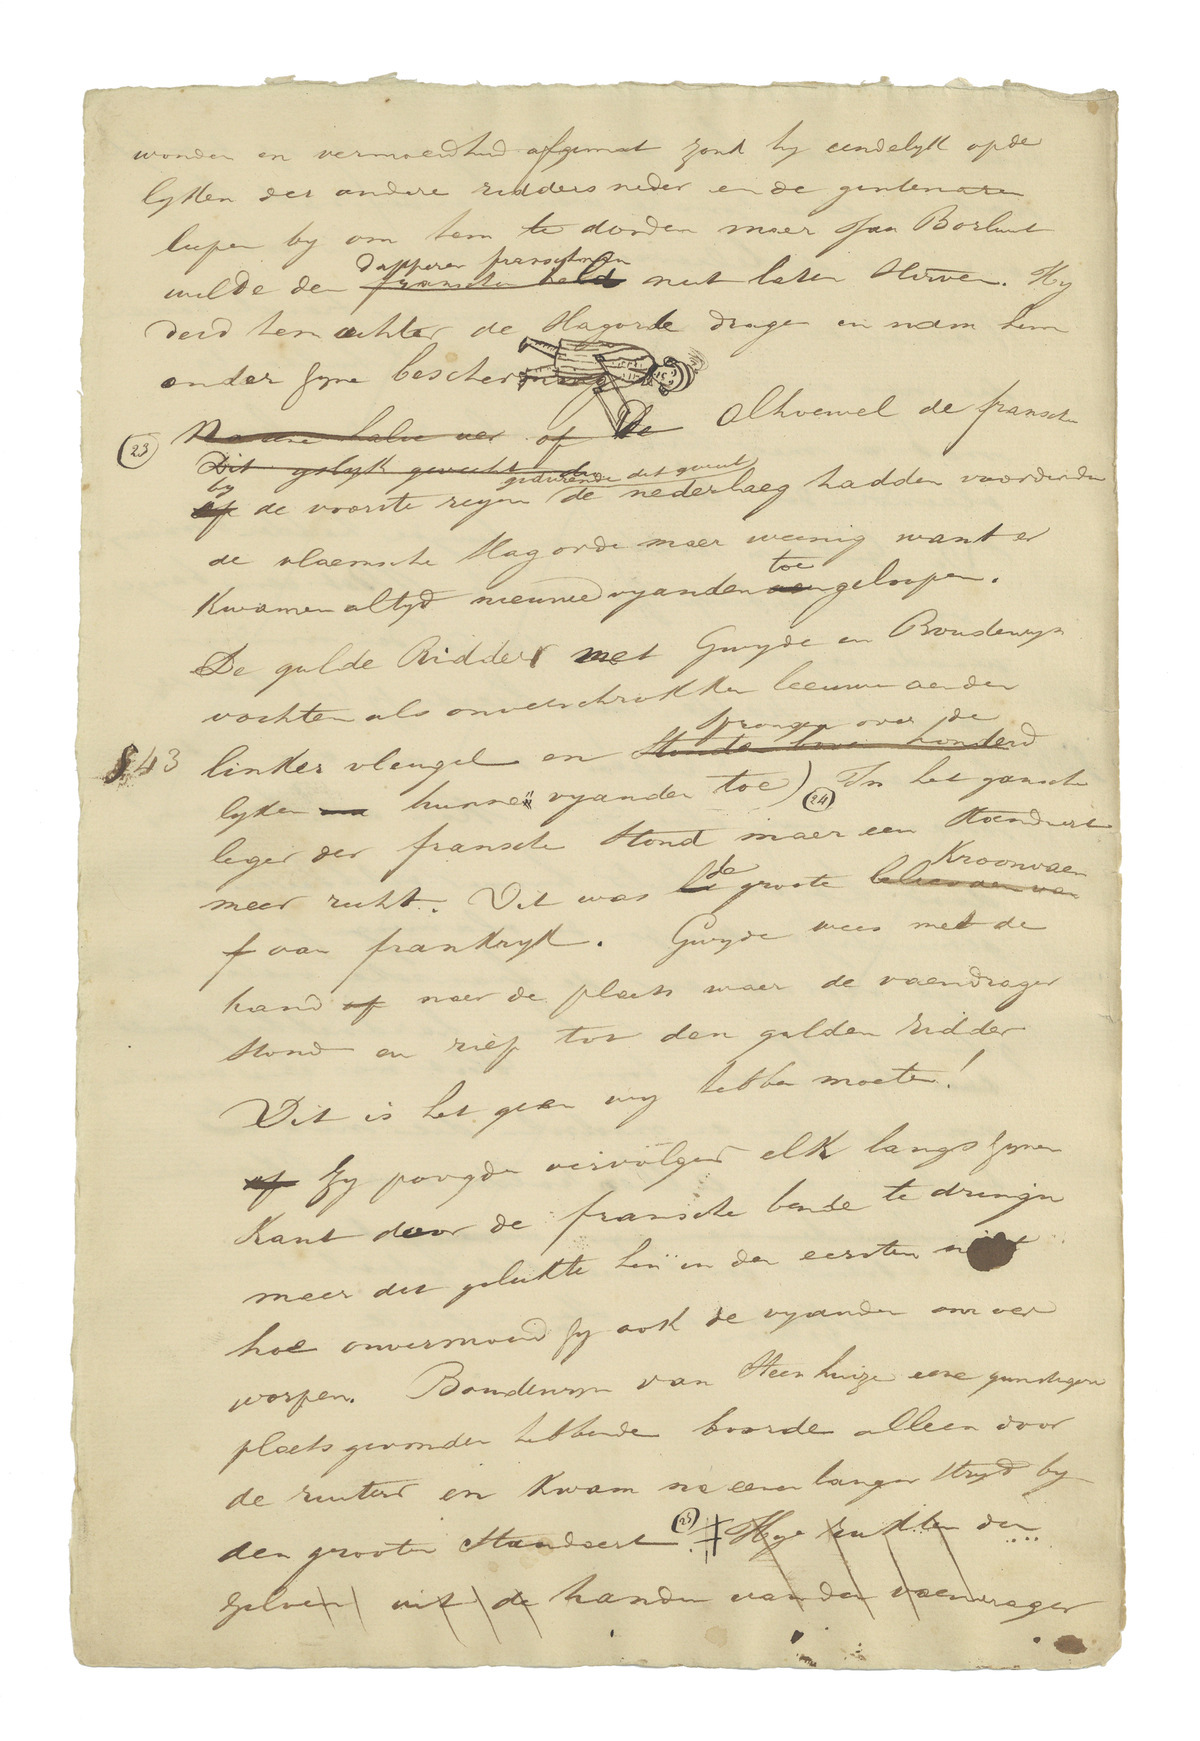 wonden en vermoeidheid afgemat zonk hy eindelyk op de
lyken der andere ridders neder en de gentenaren
liepen by om hem te dooden maer Jan Borluut
dapperen franschman
wilde den franschen held niet laten sterven. Hy
deed hem achter de slagorde dragen en nam hem
onder zyne bescherming
of De Alhoewel de fransche
(23)
Dit yslyk gevecht de
gedurende dit gevecht
by
op de voorste regen de nederlaeg hadden vorderde
de vlaemsche slagorde maer weinig want er
toe
kwamen altyd nieuwe vyanden aengeloopen.
De gulde Ridder met Gwyde en Boudewyn
vochten als onverschrokken leeuwen aen den
sprongen over de
§43 linker vleugel en honderd
lyken hunne vyanden toe) (24) In het gansche
leger der fransche stond maer een standaert
de Kroonvaen
meer recht. Dit was groote
van frankryk. Gwyde wees met de
hand of naer de plaets waer de vaendrager
stond en riep tot den gulden ridder
Dit is het geen wy hebben moeten!
of Zy poogden vervolgens elk langs zynen
kant door de fransche bende te dringen
maer dit gelukte hun in den eersten niet
hoe onvermoeid zy ook de vyanden omver
worpen. Boudewyn van Steenhuize eene gunstigere
plaets gevonden hebbende boorde alleen door
de ruiters en kwam na eenen langen stryd by
den grooten Standaert (25) Hy rukten den
zelven uit de handen van den vaendrager